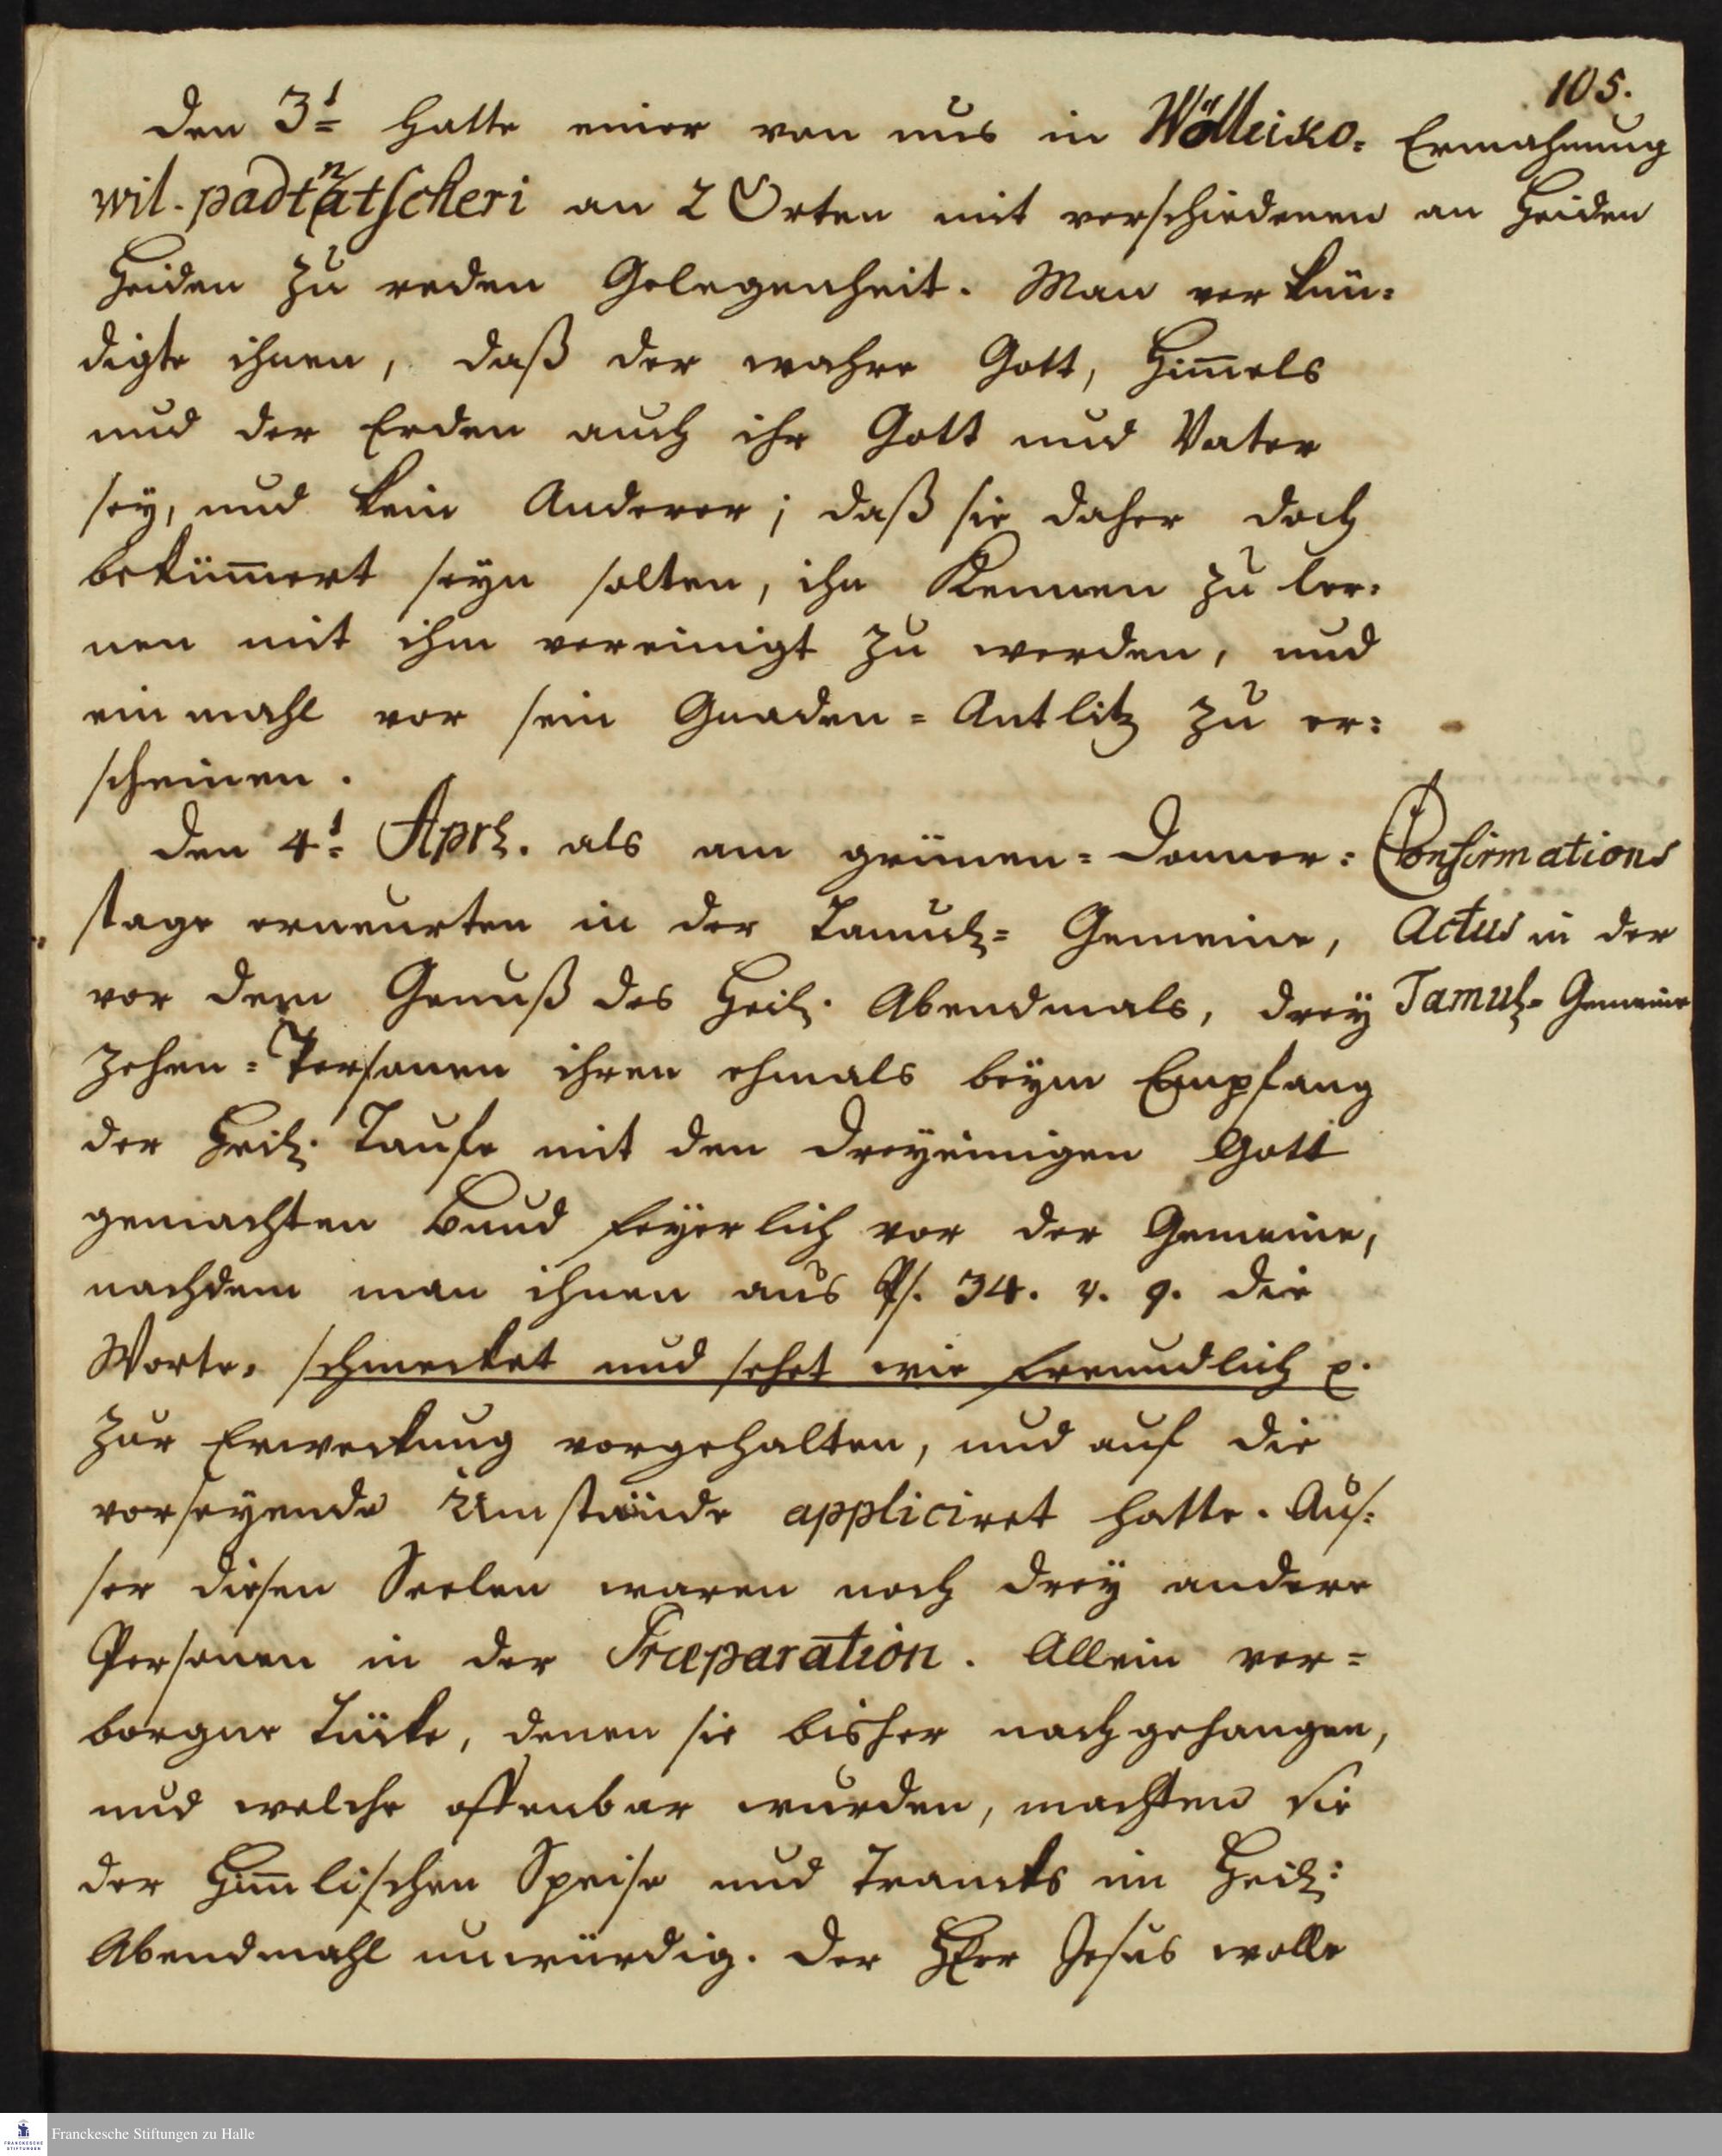 105.
Den 3t= hatte einer von uns in Wölleiko=
wil-padtnatscheri an 2 Orten mit verschiedenen
Heiden zu reden Gelegenheit. Man verkün=
digte ihnen, daß der wahre Gott, Him̄els
und der Erden auch ihr Gott und Vater
sey, und kein Anderer; daß sie daher doch
beküm̄ert seyn solten, ihn Kennen zu ler=
nen mit ihm vereinigt zu werden, und
einmahl vor sein Gnaden=Antlitz zu er=
scheinen.
Ermahnung
an Heiden
Den 4t= Apr. als am grünen=Donner=
stage erneurten in der Tamul= Gemeine,
vor dem Genuß des Heil. Abendmals, drey
zehen=Personen ihren ehmals beym Empfang
der Heil. Taufe mit den dreyeinigen Gott
gemachten Bund feyerlich vor der Gemeine,
nachdem man ihnen aus Ps. 34. v. 9. die
Worte, schmecket und sehet wie freundlich p.
zur Erweckung vorgehalten, und auf die
vorseyende Umstände appliciret hatte. Aus=
ser diesen Seelen waren noch drey andere
Personen in der Præparation. Allein ver=
borgne Tücke, denen sie bisher nachgehangen,
und welche offenbar wurden, machten sie
der Him̄lischen Speise und Trancks im Heil:
Abendmahl unwürdig. Der HErr Jesus wolle
Confirmations
Actus in der
Tamul= Gemeine
Franckesche Stiftungen zu Halle
FRANCKESCHE
STIFTUNGEN